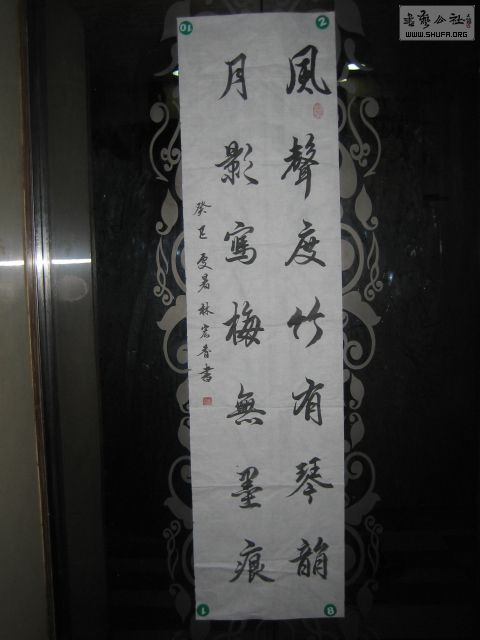 風聲度竹有琴韻
月影寫梅無墨痕
癸巳處暑林宏香書
書藝公社
WWW.SHUFA.ORG
2
10
1
8